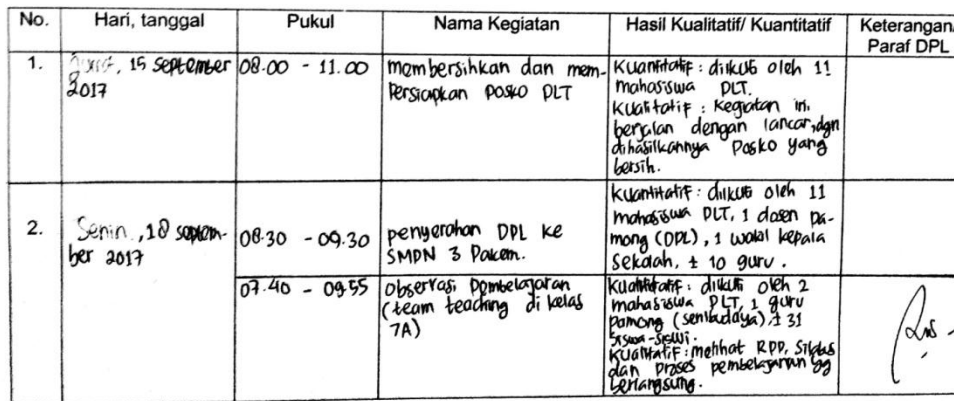 No.
Hari, tanggal
Pukul
Nama Kegiatan
Hasil Kualitatif/ Kuantitatif
Keterangan/
Paraf DPL
1.
15 september
2017
08.00 - 11.00
membersihkan dan mem-
persiapkan Posko PLT
Kuantitatif : diikuti oleh 11
mahasiswa PLT.
Kualitatif : Kegiatan ini
berjalan dengan lancar, dgn
dihasilkannya Posko yang
bersih.
2.
Senin, 18 septem-
ber 2017
08.30 - 09.30
penyerahan DPL ke
SMPN 3 Pakem.
Kuantitatif : diikuti oleh 11
mahasiswa PLT, 1 dosen pa-
mong (DPL), 1 wakil kepala
Sekolah, ± 10 guru.
07.40 - 09.55
Observasi Pembelajaran
(team teaching di kelas
7A)
Kuantitatif : diikuti oleh 2
mahasiswa PLT, 1 guru
pamong (seni budaya), ± 31
siswa-siswi.
Kualitatif : melihat RPP, Silabus
dan proses pembelajaran yg
berlangsung.